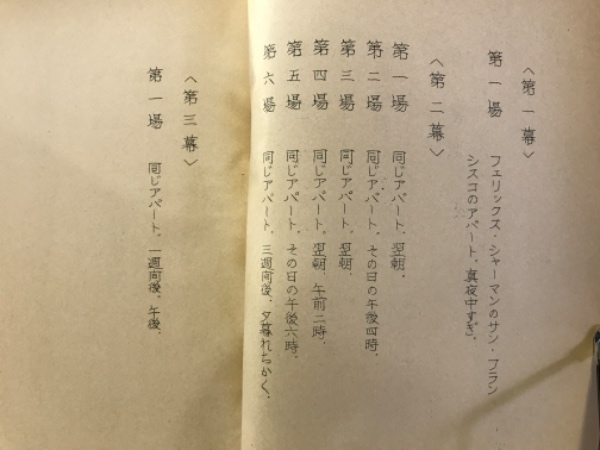 〈第一幕〉
第一場　フェリックス・シャーマンのサン・フラン
シスコのアパート。真夜中すぎ。
〈第二幕〉
第一場　同じアパート。翌朝。
第二場　同じアパート。その日の午後四時。
第三場　同じアパート。翌朝。
第四場　同じアパート。翌朝、午前二時。
第五場　同じアパート。その日の午後六時。
第六場　同じアパート。三週間後。夕暮れちかく。
〈第三幕〉
第一場　同じアパート。一週間後。午後。